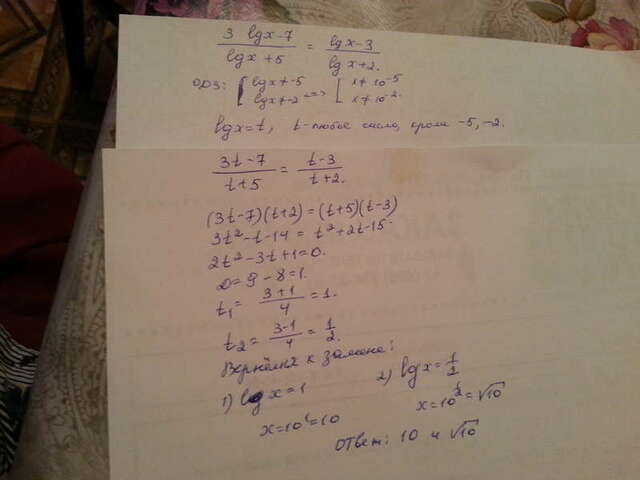 3 lgx-7 / lgx+5 = lgx-3 / lgx+2.
ОДЗ: { lgx≠-5 => [ x≠10^-5
lgx≠-2 x≠10^-2.
lgx=t, t-любое число, кроме -5, -2.
3t-7 / t+5 = t-3 / t+2.
(3t-7)(t+2)=(t+5)(t-3)
3t²-t-14 = t²+2t-15
2t²-3t+1=0.
D=9-8=1.
t₁= 3+1 / 4 =1.
t₂= 3-1 / 4 = 1/2.
Вернёмся к замене:
1) lgx=1
2) lgx=1/2
x=10¹=10
x=10^1/2=√10
Ответ: 10 и √10